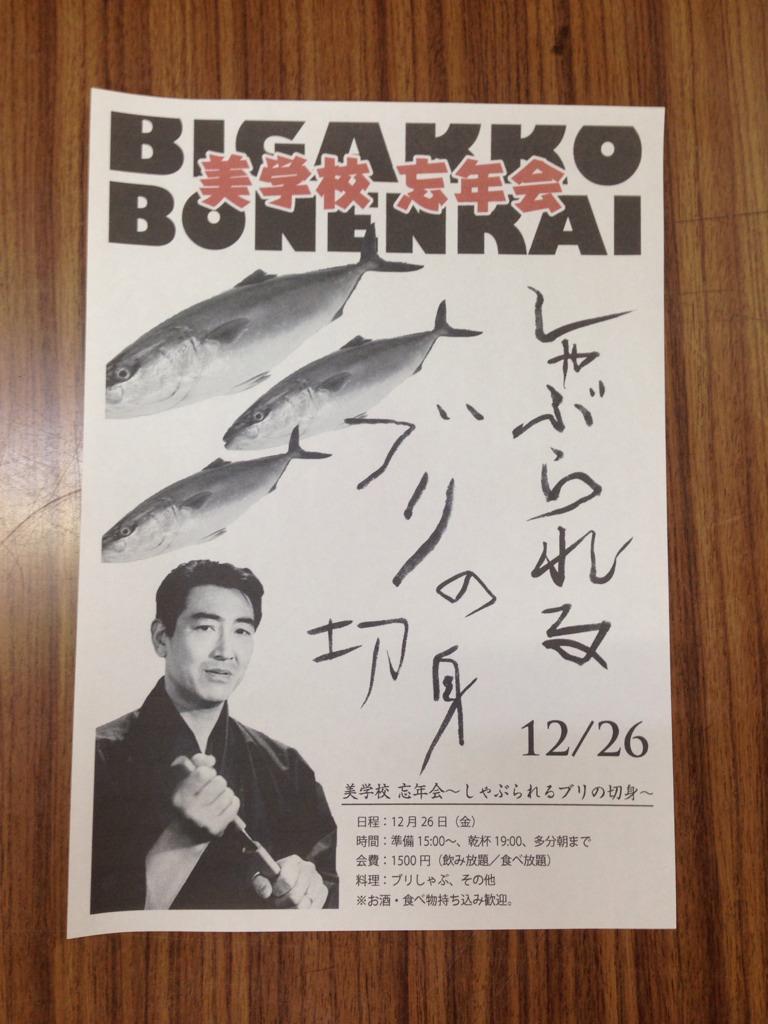 BIGAKKO
美学校 忘年会
BONENKAI
しゃぶられる
ブリの
切身
12/26
美学校 忘年会~しゃぶられるブリの切身~
日程：12月26日（金）
時間：準備15:00~、乾杯19:00、多分朝まで
会費：1500円（飲み放題／食べ放題）
料理：ブリしゃぶ、その他
※お酒・食べ物持ち込み歓迎。